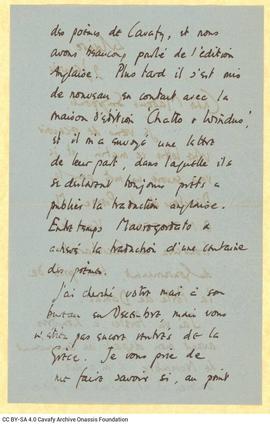 des poèmes de Cavafy, et nous
avons beaucoup parlé de l'édition
Anglaise. Plus tard il s'est mis
de nouveau en contact avec la
maison d'édition Chatto & Windus,
et il m'a envoyé une lettre
de leur part dans laquelle ils
se déclarent toujours prêts a
publier la traduction anglaise.
Entretemps Mavrogordato a
achevé la traduction d'une centaine
des poèmes.
J'ai cherché votre mari à son
bureau en Decembre, mais vous
n'étiez pas encore rentrés de la
Grèce. Je vous prie de
me faire savoir si, au point
CC BY-SA 4.0 Cavafy Archive Onassis Foundation